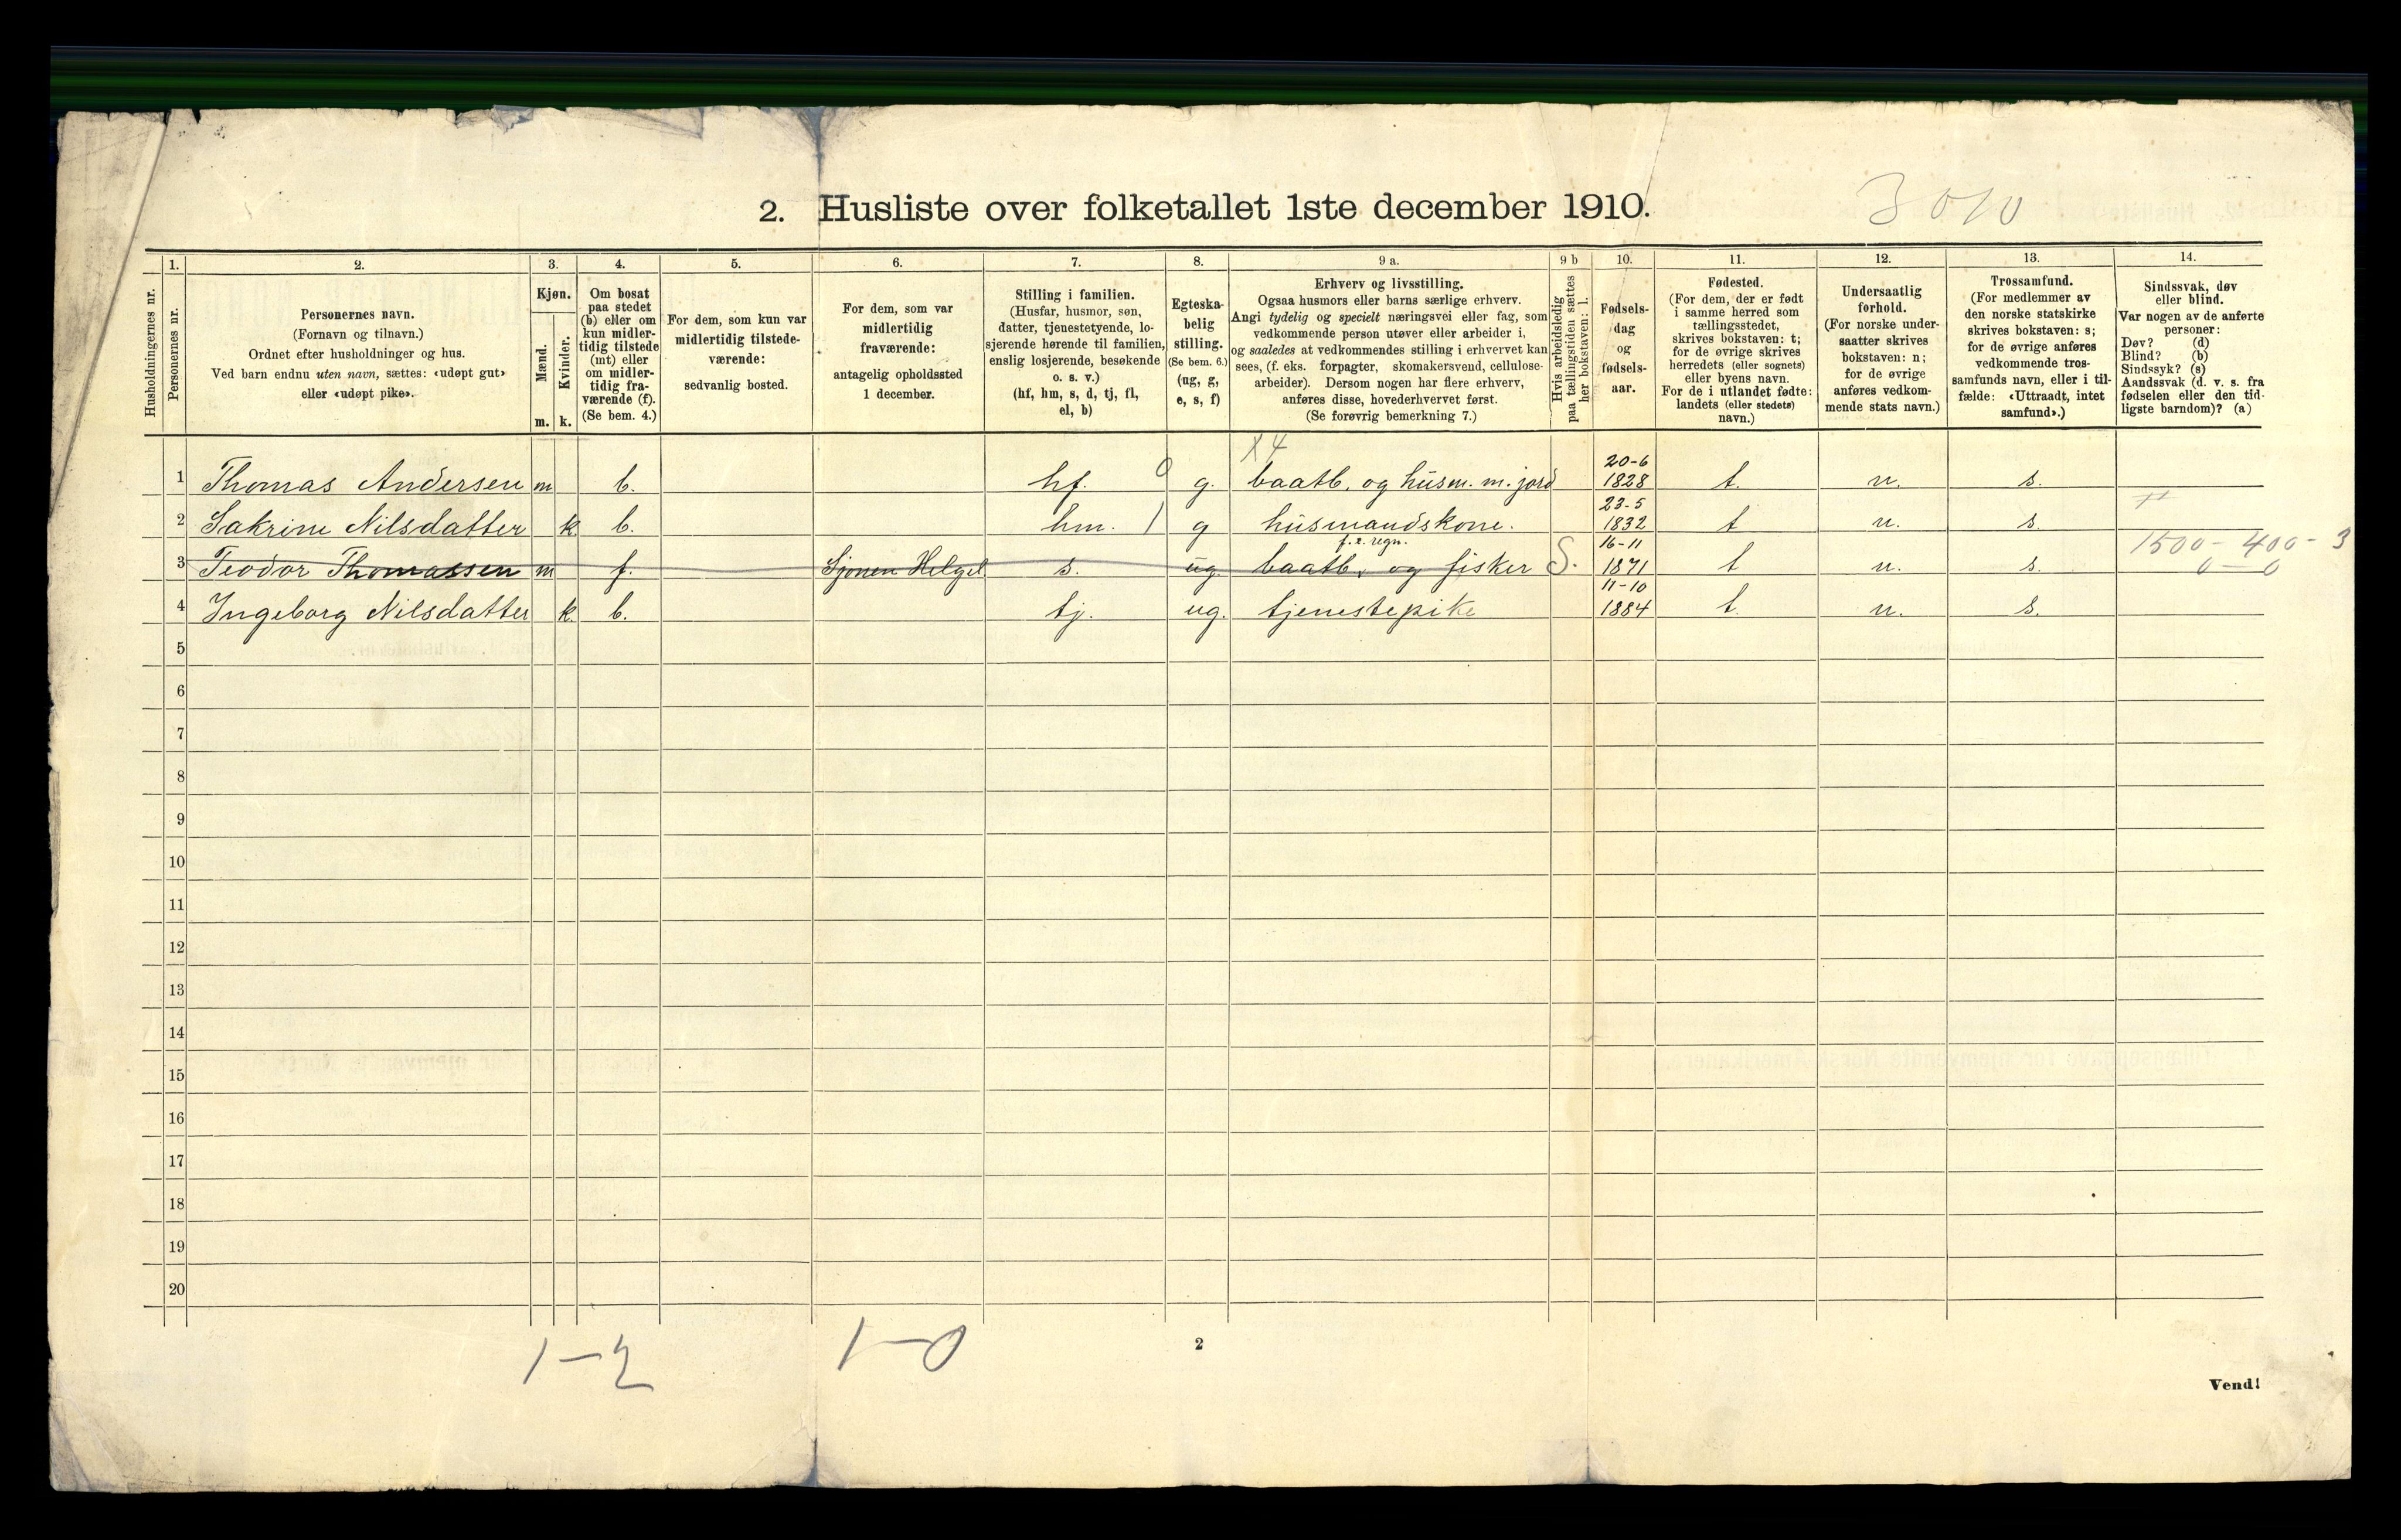 2. Husliste over folketallet 1ste december 1910.
3010
Husholdningernes nr.
1.
Personernes nr.
2.
Personernes navn.
(Fornavn og tilnavn.)
Ordnet efter husholdninger og hus.
Ved barn endnu uten navn, sættes: «udøpt gut»
eller «udøpt pike».
3.
Kjøn.
Mænd.
Kvinder.
m. k.
4.
Om bosat
paa stedet
(b) eller om
kun midler-
tidig tilstede
(mt) eller
om midler-
tidig fra-
værende (f).
(Se bem. 4.)
5.
For dem, som kun var
midlertidig tilstede-
værende:
sedvanlig bosted.
6.
For dem, som var
midlertidig
fraværende:
antagelig opholdssted
1 december.
7.
Stilling i familien.
(Husfar, husmor, søn,
datter, tjenestetyende, lo-
sjerende hørende til familien,
enslig losjerende, besøkende
o. s. v.)
(hf, hm, s, d, tj, fl,
el, b)
8.
Egteska-
belig
stilling.
(Se bem. 6.)
(ug, g,
e, s, f)
9 a.
Erhverv og livsstilling.
Ogsaa husmors eller barns særlige erhverv.
Angi tydelig og specielt næringsvei eller fag, som
vedkommende person utøver eller arbeider i,
og saaledes at vedkommendes stilling i erhvervet kan
sees, (f. eks. forpagter, skomakersvend, cellulose-
arbeider). Dersom nogen har flere erhverv,
anføres disse, hovederhvervet først.
(Se forøvrig bemerkning 7.)
9 b
Hvis arbeidsledig
paa tællingstiden sættes
her bokstaven: l.
10.
Fødsels-
dag
og
fødsels-
aar.
11.
Fødested.
(For dem, der er født
i samme herred som
tællingsstedet,
skrives bokstaven: t;
for de øvrige skrives
herredets (eller sognets)
eller byens navn.
For de i utlandet fødte:
landets (eller stedets)
navn.)
12.
Undersaatlig
forhold.
(For norske under-
saatter skrives
bokstaven: n;
for de øvrige
anføres vedkom-
mende stats navn.)
13.
Trossamfund.
(For medlemmer av
den norske statskirke
skrives bokstaven: s;
for de øvrige anføres
vedkommende tros-
samfunds navn, eller i til-
fælde: «Uttraadt, intet
samfund».)
14.
Sindssvak, døv
eller blind.
Var nogen av de anførte
personer:
Døv? (d)
Blind? (b)
Sindssyk? (s)
Aandssvak (d. v. s. fra
fødselen eller den tid-
ligste barndom)? (a)
X4
1 Thomas Andersen m b. hf. 0 g. baatb. og husm. m. jord 20-6 1828 t. n. s.
2 Sakrine Nilsdatter k. b. hm. 1 g husmandskone. 23-5 1832 t n. s.
f. e. regn.
3 Teodor Thomassen m f. Sjonen Helgel. s. ug. baatb. og fisker S. 16-11 1871 t n. s. 1500 - 400 - 3
0 - 0
4 Ingeborg Nilsdatter k. b. tj. ug. tjenestepike 11-10 1884 t. n. s.
5
6
7
8
9
10
11
12
13
14
15
16
17
18
19
20
1-2
1-0
2
Vend!